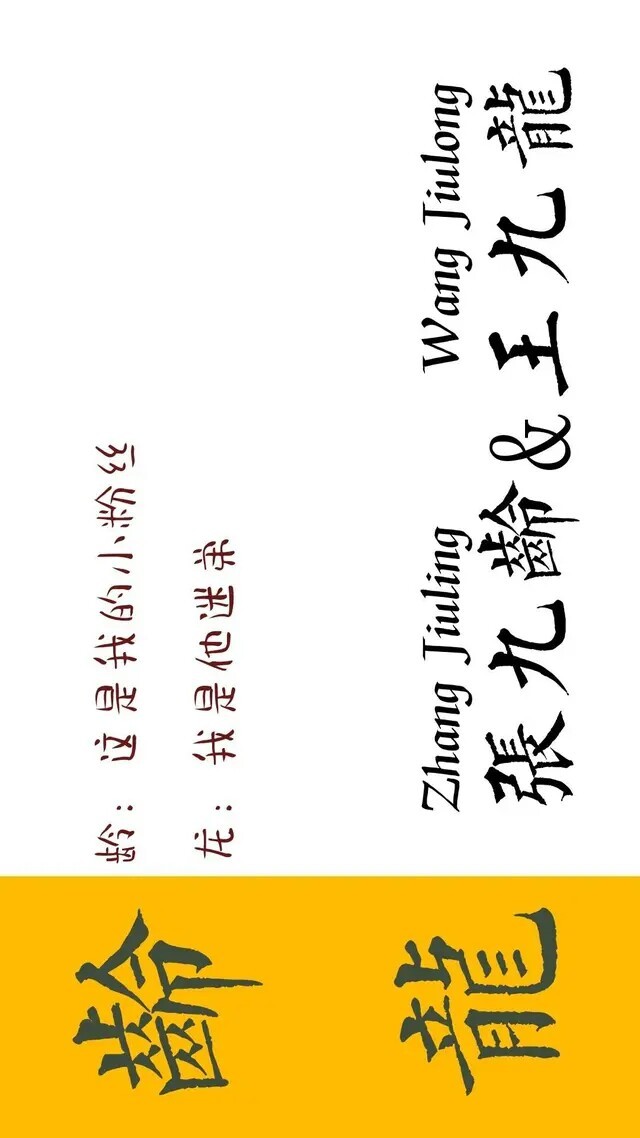 龄：这是我的小粉丝
龙：我是他迷弟
Zhang Jiuling Wang Jiulong
張九齡&王九龍
齡
龍